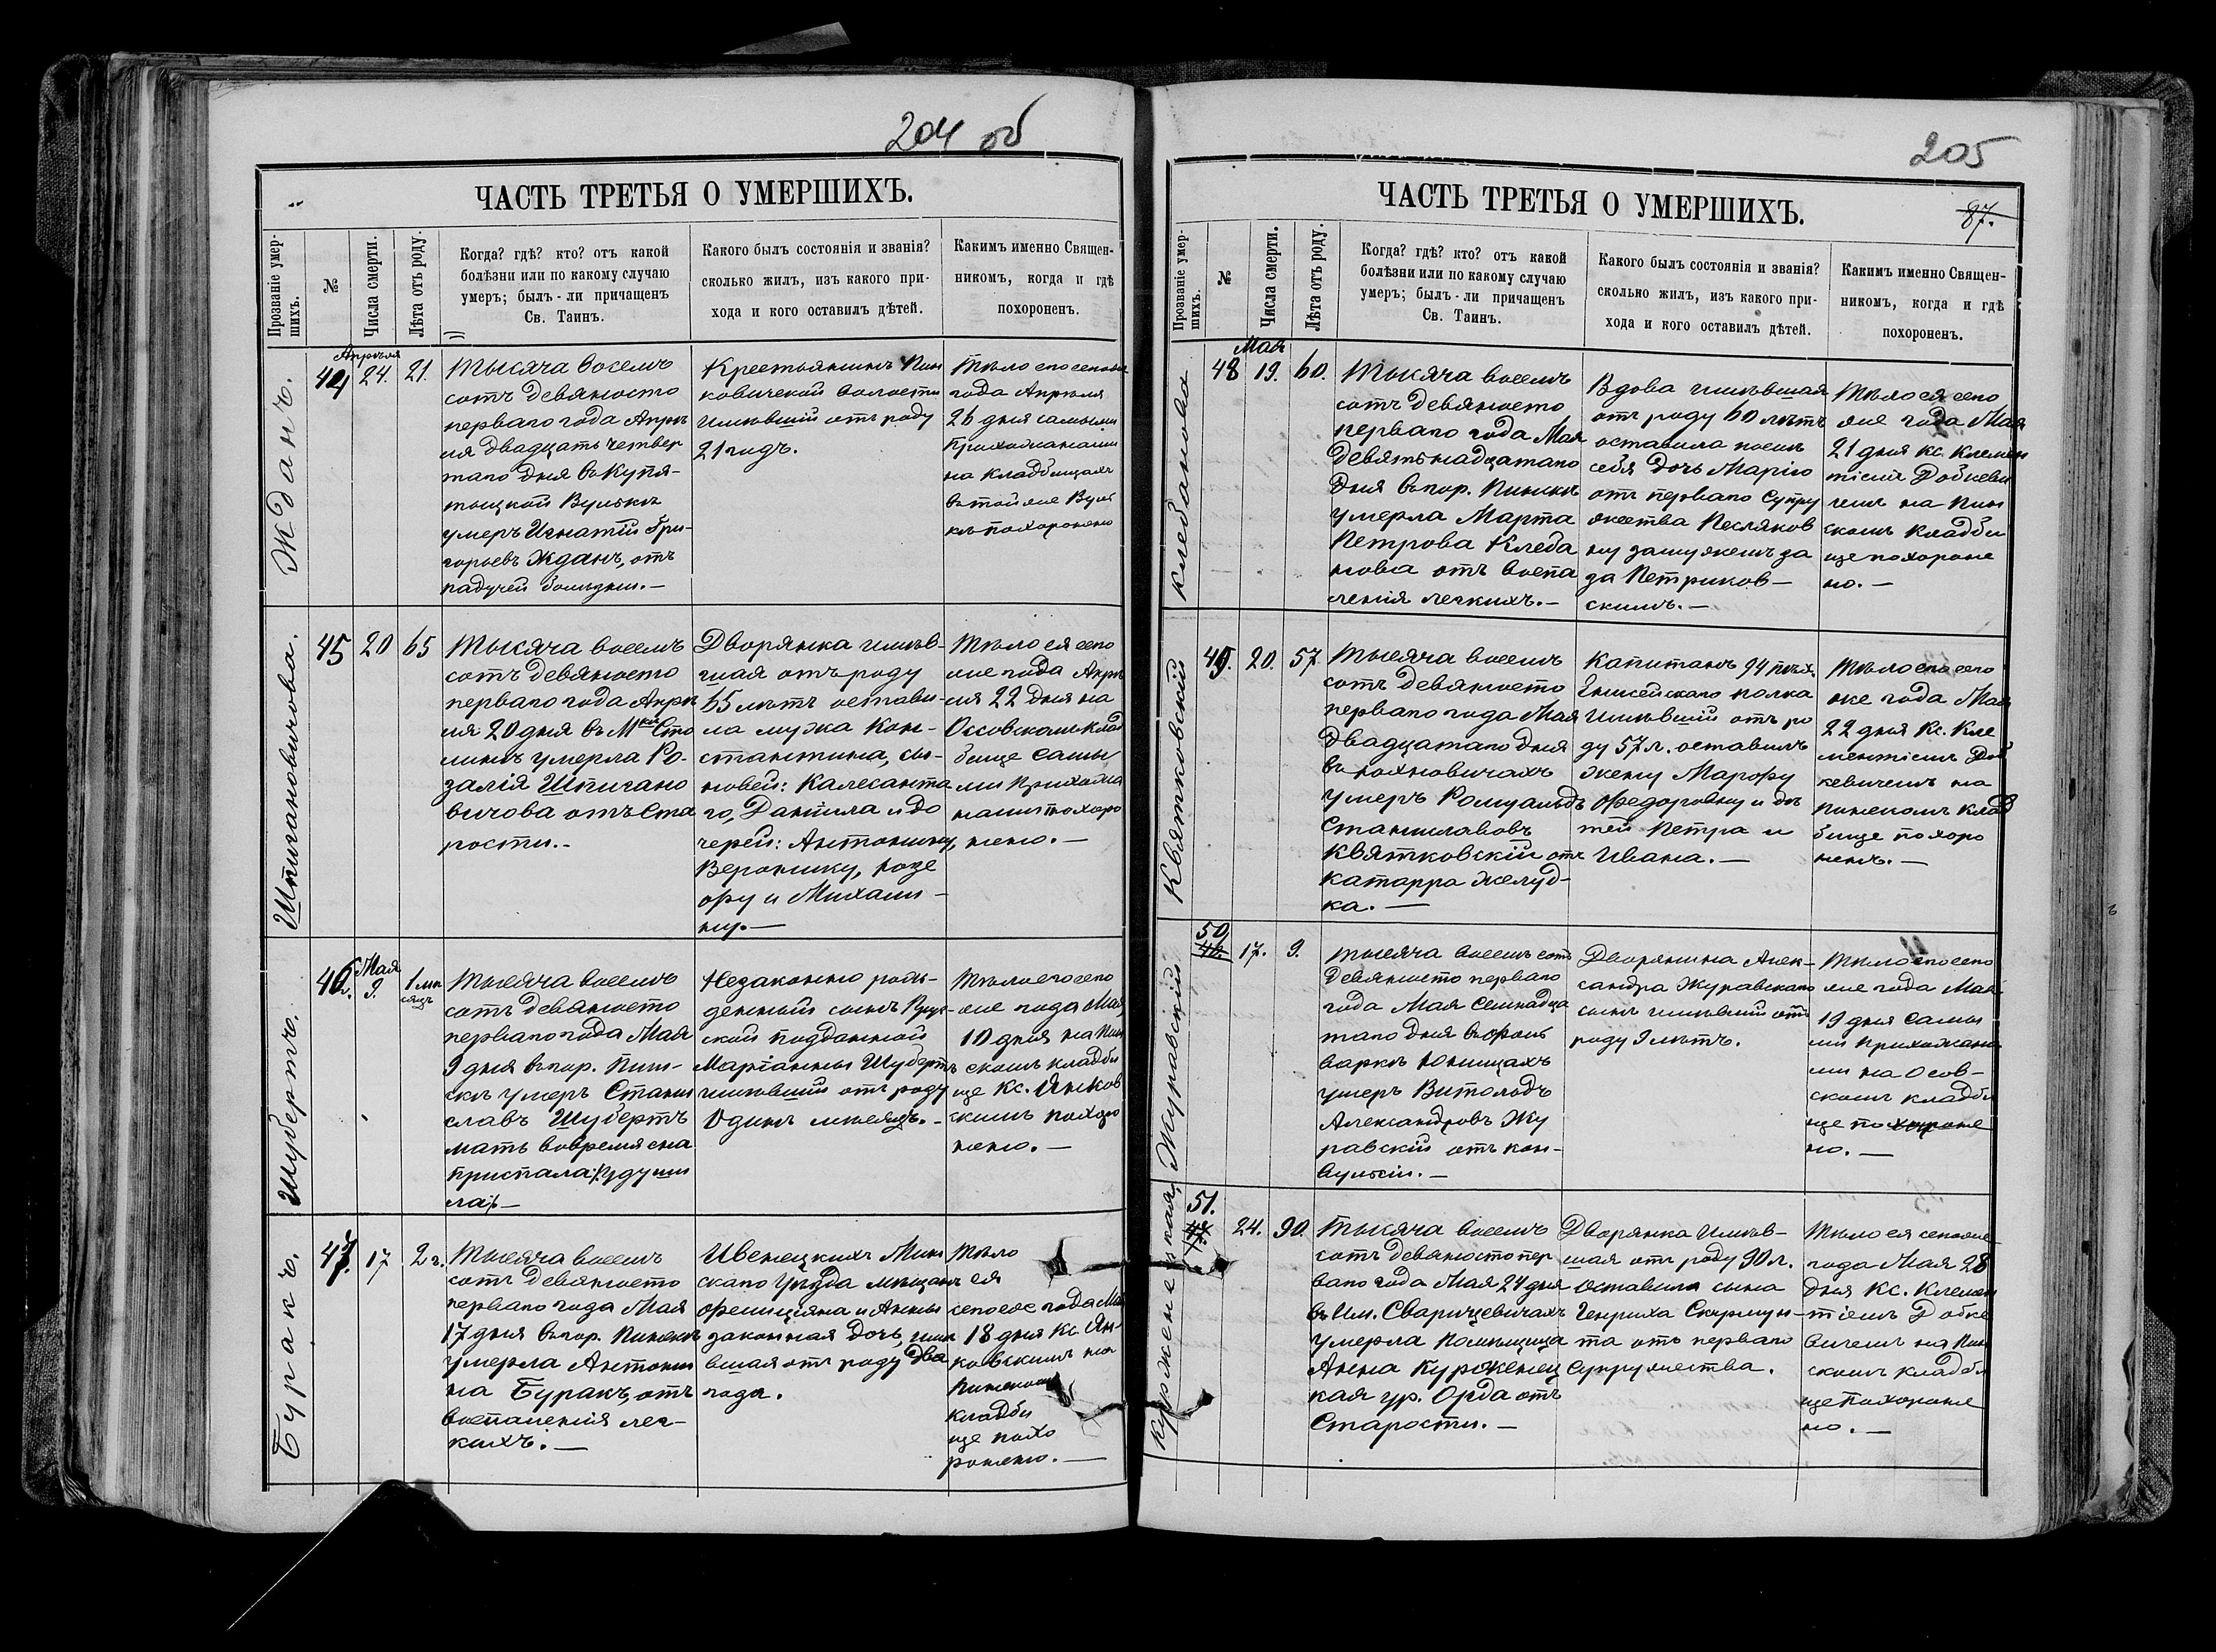 204 об
ЧАСТЬ ТРЕТЬЯ О УМЕРШИХЪ.
Прозваніе умер-
шихъ.
№
Числа смерти.
Лѣта отъ роду.
Когда? гдѣ? кто? отъ какой
болѣзни или по какому случаю
умеръ; былъ-ли причащенъ
Св. Таинъ.
Какого былъ состоянія и званія?
сколько жилъ, изъ какого при-
хода и кого оставилъ дѣтей.
Какимъ именно Священ-
никомъ, когда и гдѣ
похороненъ.
Жданъ.
44
Апрѣля
24.
21.
Тысяча восемь
сотъ девяносто
перваго года Апрѣ
ля двадцать четвер
таго дня въ Купя-
тыцкой Вулькѣ
умеръ Игнатій Гри-
горьевъ Жданъ, отъ
падучей болѣзни.—
Крестьянинъ Пин
ковичской волости
имѣвшій отъ роду
21 годъ.
Тѣло его сегоже
года Апрѣля
26 дня самыми
Прихожанами
на кладбищахъ
въ той же Вуль
кѣ похоронено
Шпигановичова.
45
20
65
Тысяча восемь
сотъ девяносто
перваго года Апрѣ
ля 20 дня въ Мкѣ Сто
линѣ умерла Ро-
залія Шпигано
вичова отъ Ста
рости.-
Дворянка имѣв-
шая отъ роду
65 лѣтъ остави-
ла мужа Кон-
стантина, сы-
новей: Калесанта
го, Данiила и до
черей: Антонину,
Веронику, Юзе
фу и Михали-
ну.—
Тѣло ея сего
же года Апрѣ
ля 22 дня на
Оссовскомъ клад
бище самы
ми Прихожа
нами похоро
нено.—
Шубертъ.
46.
Мая
9.
1 мѣ
сяцъ
Тысяча восемь
сотъ девяносто
перваго года Мая
9 дня въ гор. Пин-
скѣ умеръ Стани
славъ Шубертъ
мать вовремя сна
приспала /:удуши
ла:/—
Незаконно рож-
денный сынъ Прус-
ской подданной
Маріанны Шубертъ
имѣвшій отъ роду
Одинъ мѣсяцъ.-
Тѣло его сего
же года Мая
10 дня на Пин
скомъ кладби
ще Кс. Янков
скимъ похоро
нено.—
Буракъ.
47.
17
2 г.
Тысяча восемь
сотъ девяносто
перваго года Мая
17 дня въ гор. Пинскѣ
умерла Антони
на Буракъ, отъ
воспаленія лег-
кихъ.—
Ивенецкихъ Мин
скаго Уѣзда мѣщанъ
Фелиціяна и Анны
законная дочь, имѣ
вшая отъ роду два
года.
Тѣло
ея
сегоже года Мая
18 дня Кс. Ян-
ковскимъ на
Пинскомъ
кладби
ще похо
ронено.—
205
87.
ЧАСТЬ ТРЕТЬЯ О УМЕРШИХЪ.
Прозваніе умер-
шихъ.
№
Числа смерти.
Лѣта отъ роду.
Когда? гдѣ? кто? отъ какой
болѣзни или по какому случаю
умеръ; былъ-ли причащенъ
Св. Таинъ.
Какого былъ состоянія и званія?
сколько жилъ, изъ какого при-
хода и кого оставилъ дѣтей.
Какимъ именно Священ-
никомъ, когда и гдѣ
похороненъ.
Клебанова
48
Мая
19.
60.
Тысяча восемь
сотъ девяносто
перваго года Мая
девятьнадцатаго
дня въ гор. Пинскѣ
умерла Марта
Петрова Клеба
нова отъ воспа
ленія легкихъ.-
Вдова имѣвшая
отъ роду 60 лѣтъ
оставила послѣ
себя дочь Марію
отъ перваго Супру
жества Песляков
ну замужемъ за
за Петриков-
скимъ.—
Тѣло ея сего
же года Мая
21 дня Кс. Клемен
тіемъ Добкеви
чемъ на Пин
скомъ кладби
ще похороне
но.—
Квятковскій
49.
20.
57
Тысяча восемь
сотъ девяносто
перваго года Мая
двадцатаго дня
въ Лохновичахъ
умеръ Ромуальдъ
Станиславовъ
Квятковскій отъ
катарра желуд-
ка.—
Капитанъ 94 пѣх.
Енисейскаго полка
имѣвшій отъ ро
ду 57 л. оставилъ
жену Марфу
Федоровну и дѣ
тей Петра и
Ивана.—
Тѣло его сего
же года Мая
22 дня Кс. Кле
ментіемъ Доб
кевичемъ на
Пинскомъ клад
бище похоро
ненъ.—
Журавскій
50.
17.
9.
Тысяча восемь сотъ
девяносто перваго
года Мая Семнадца
таго дня въ фоль
варкѣ Юнищахъ
умеръ Витольдъ
Александровъ Жу
равскій отъ кон-
вульсіи.—
Дворянина Алек-
сандра Журавскаго
сынъ имѣвшій отъ
роду 9 лѣтъ.
Тѣло его сего
же года Мая
19 дня самы
ми Прихожана
ми на Осов-
скомъ кладби
ще похороне
но.—
Курженецкая
51.
24.
90.
Тысяча восемь
сотъ девяносто пер
ваго года Мая 24 дня
въ Им. Сварицевичахъ
умерла помѣщица
Анна Курженец
кая ур. Орда отъ
Старости.—
Дворянка имѣв-
шая отъ роду 90 л.
оставила сына
Генриха Скирмун-
та отъ перваго
Супружества.
Тѣло ея сегоже
года Мая 28
дня Кс. Клемен
тіемъ Добке
вичемъ на Пин
скомъ кладби
ще похороне
но.—